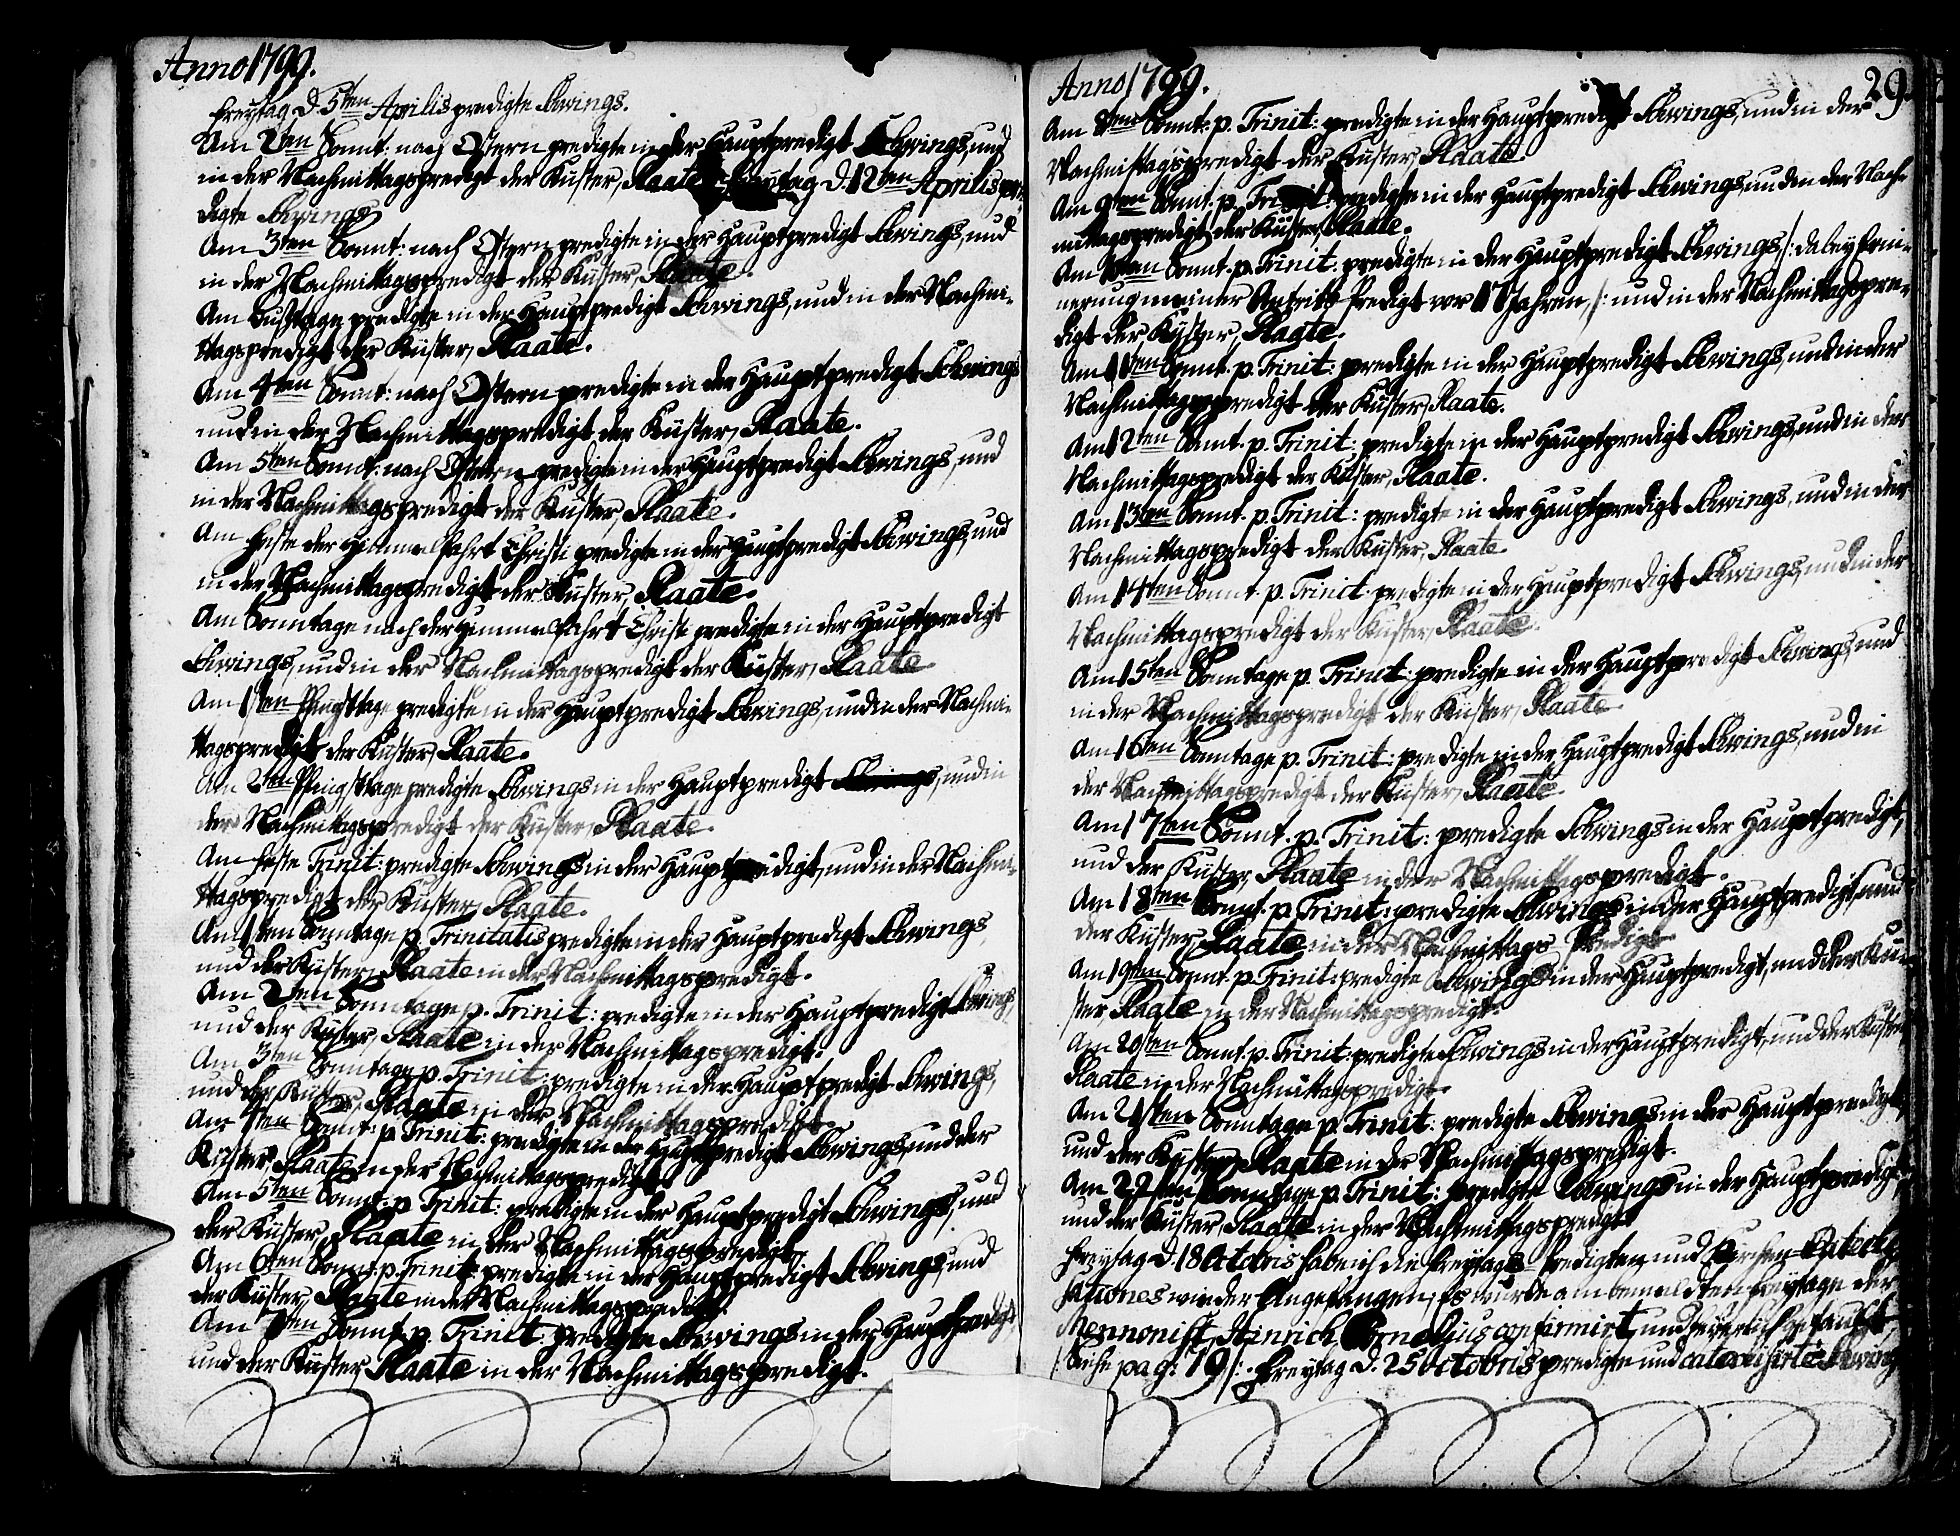 Anno 1799.
Freytag d. 5ten Aprilis predigte Schwings.
Am 2ten Sonnt: nach Ostern predigte in der Hauptpredigt Schwings, und
in der Nachmittagspredigt der Küster, Plaate. Freytag d. 12ten Aprilis pre-
digte Schwings
Am 3ten Sonnt: nach Ostern predigte in der Hauptpredigt Schwings, und
in der Nachmittagspredigt der Küster, Plaate.
Am Bußtage predigte in der Hauptpredigt Schwings, und in der Nachmi-
ttagspredigt der Küster, Plaate.
Am 4ten Sonnt: nach Ostern predigte in der Hauptpredigt Schwings
und in der Nachmittagspredigt der Küster, Plaate.
Am 5ten Sonnt: nach Ostern predigte in der Hauptpredigt Schwings, und
in der Nachmittagspredigt der Küster, Plaate.
Am Feste der Himmelfahrt Christi predigte in der Hauptpredigt Schwings, und
in der Nachmittagspredigt der Küster, Plaate.
Am Sonntage nach der Himmelfahrt Christi predigte in der Hauptpredigt
Schwings, und in der Nachmittagspredigt der Küster, Plaate
Am 1sten Pfingsttage predigte in der Hauptpredigt Schwings, und in der Nachmi-
ttagspredigt der Küster, Plaate.
Am 2ten Pfingsttage predigte Schwings in der Hauptpredigt Schwings, und in
der Nachmittagspredigt der Küster, Plaate.
Am Feste Trinit: predigte Schwings in der Hauptpredigt, und in der Nachmi-
ttagspredigt der Küster, Plaate.
Am 1sten Sonntage p. Trinitatis predigte in der Hauptpredigt Schwings
und der Küster, Plaate in der Nachmittagspredigt.
Am 2ten Sonntage p. Trinit: predigte in der Hauptpredigt Schwings,
und der Küster, Plaate in der Nachmittagspredigt.
Am 3ten Sonntage p. Trinit: predigte in der Hauptpredigt Schwings,
und der Küster, Plaate in der Nachmittagspredigt.
Am 4ten Sonnt: p. Trinit: predigte in der Hauptpredigt Schwings, und der
Küster, Plaate in der Nachmittagspredigt.
Am 5ten Sonnt: p. Trinit: predigte in der Hauptpredigt Schwings, und
der Küster, Plaate in der Nachmittagspredigt.
Am 6ten Sonnt: p. Trinit: predigte in der Hauptpredigt Schwings, und
der Küster, Plaate in der Nachmittagspredigt.
Am 7ten Sonnt. p. Trinit: predigte Schwings in der Hauptpredigt
und der Küster, Plaate in der Nachmittagspredigt.
Anno 1799.
29
Am 8ten Sonnt: p. Trinit: predigte in der Hauptpredigt Schwings, und in der
Nachmittagspredigt der Küster, Plaate.
Am 9ten Sonnt. p. Trinit: predigte in der Hauptpredigt Schwings, und in der Nach-
mittagspredigt der Küster, Plaate.
Am 10ten Sonnt. p. Trinit: predigte in der Hauptpredigt Schwings, /: dabey Erin-
nerung meiner Antritts Predigt vor 17 Jahren, :/ und in der Nachmittagspre-
digt der Küster, Plaate.
Am 11ten Sonnt. p. Trinit: predigte in der Hauptpredigt Schwings, und in der
Nachmittagspredigt der Küster, Plaate.
Am 12ten Sonnt. p. Trinit: predigte in der Hauptpredigt Schwings, und in der
Nachmittagspredigt der Küster, Plaate.
Am 13ten Sonnt. p. Trinit: predigte in der Hauptpredigt Schwings, und in der
Nachmittagspredigt der Küster, Plaate.
Am 14ten Sonnt. p. Trinit: predigte in der Hauptpredigt Schwings, und in der
Nachmittagspredigt der Küster, Plaate.
Am 15ten Sonntage p. Trinit: predigte in der Hauptpredigt Schwings, und
in der Nachmittagspredigt der Küster, Plaate.
Am 16ten Sonntage p. Trinit: predigte in der Hauptpredigt Schwings, und in
der Nachmittagspredigt der Küster, Plaate.
Am 17ten Sonnt. p. Trinit: predigte Schwings in der Hauptpredigt,
und der Küster, Plaate in der Nachmittagspredigt.
Am 18ten Sonnt. p. Trinit: predigte Schwings in der Hauptpredigt, und
der Küster, Plaate in der Nachmittags Predigt
Am 19ten Sonnt. p. Trinit: predigte Schwings in der Hauptpredigt, und der Kü-
ster, Plaate in der Nachmittagspredigt.
Am 20sten Sonnt. p. Trinit: predigte Schwings in der Hauptpredigt, und der Küster
Plaate in der Nachmittagspredigt.
Am 21sten Sonntage p. Trinit: predigte Schwings in der Hauptpredigt
und der Küster, Plaate in der Nachmittagspredigt.
Am 22sten Sonntage p. Trinit: predigte Schwings in der Hauptpredigt
und der Küster, Plaate in der Nachmittagspredigt
Freytag d. 18 Octobris habe ich die Freytags Predigten und Kirchen Catechi-
sationes wieder Angefangen; Es wurde am bemeldten Freytage der
Mennonist, Hinrich Cornelius confirmirt, und feyerlich getauft
/: Siehe pag: 19 :/. Freytag d. 25 Octobris predigte und catechisirte Schwings